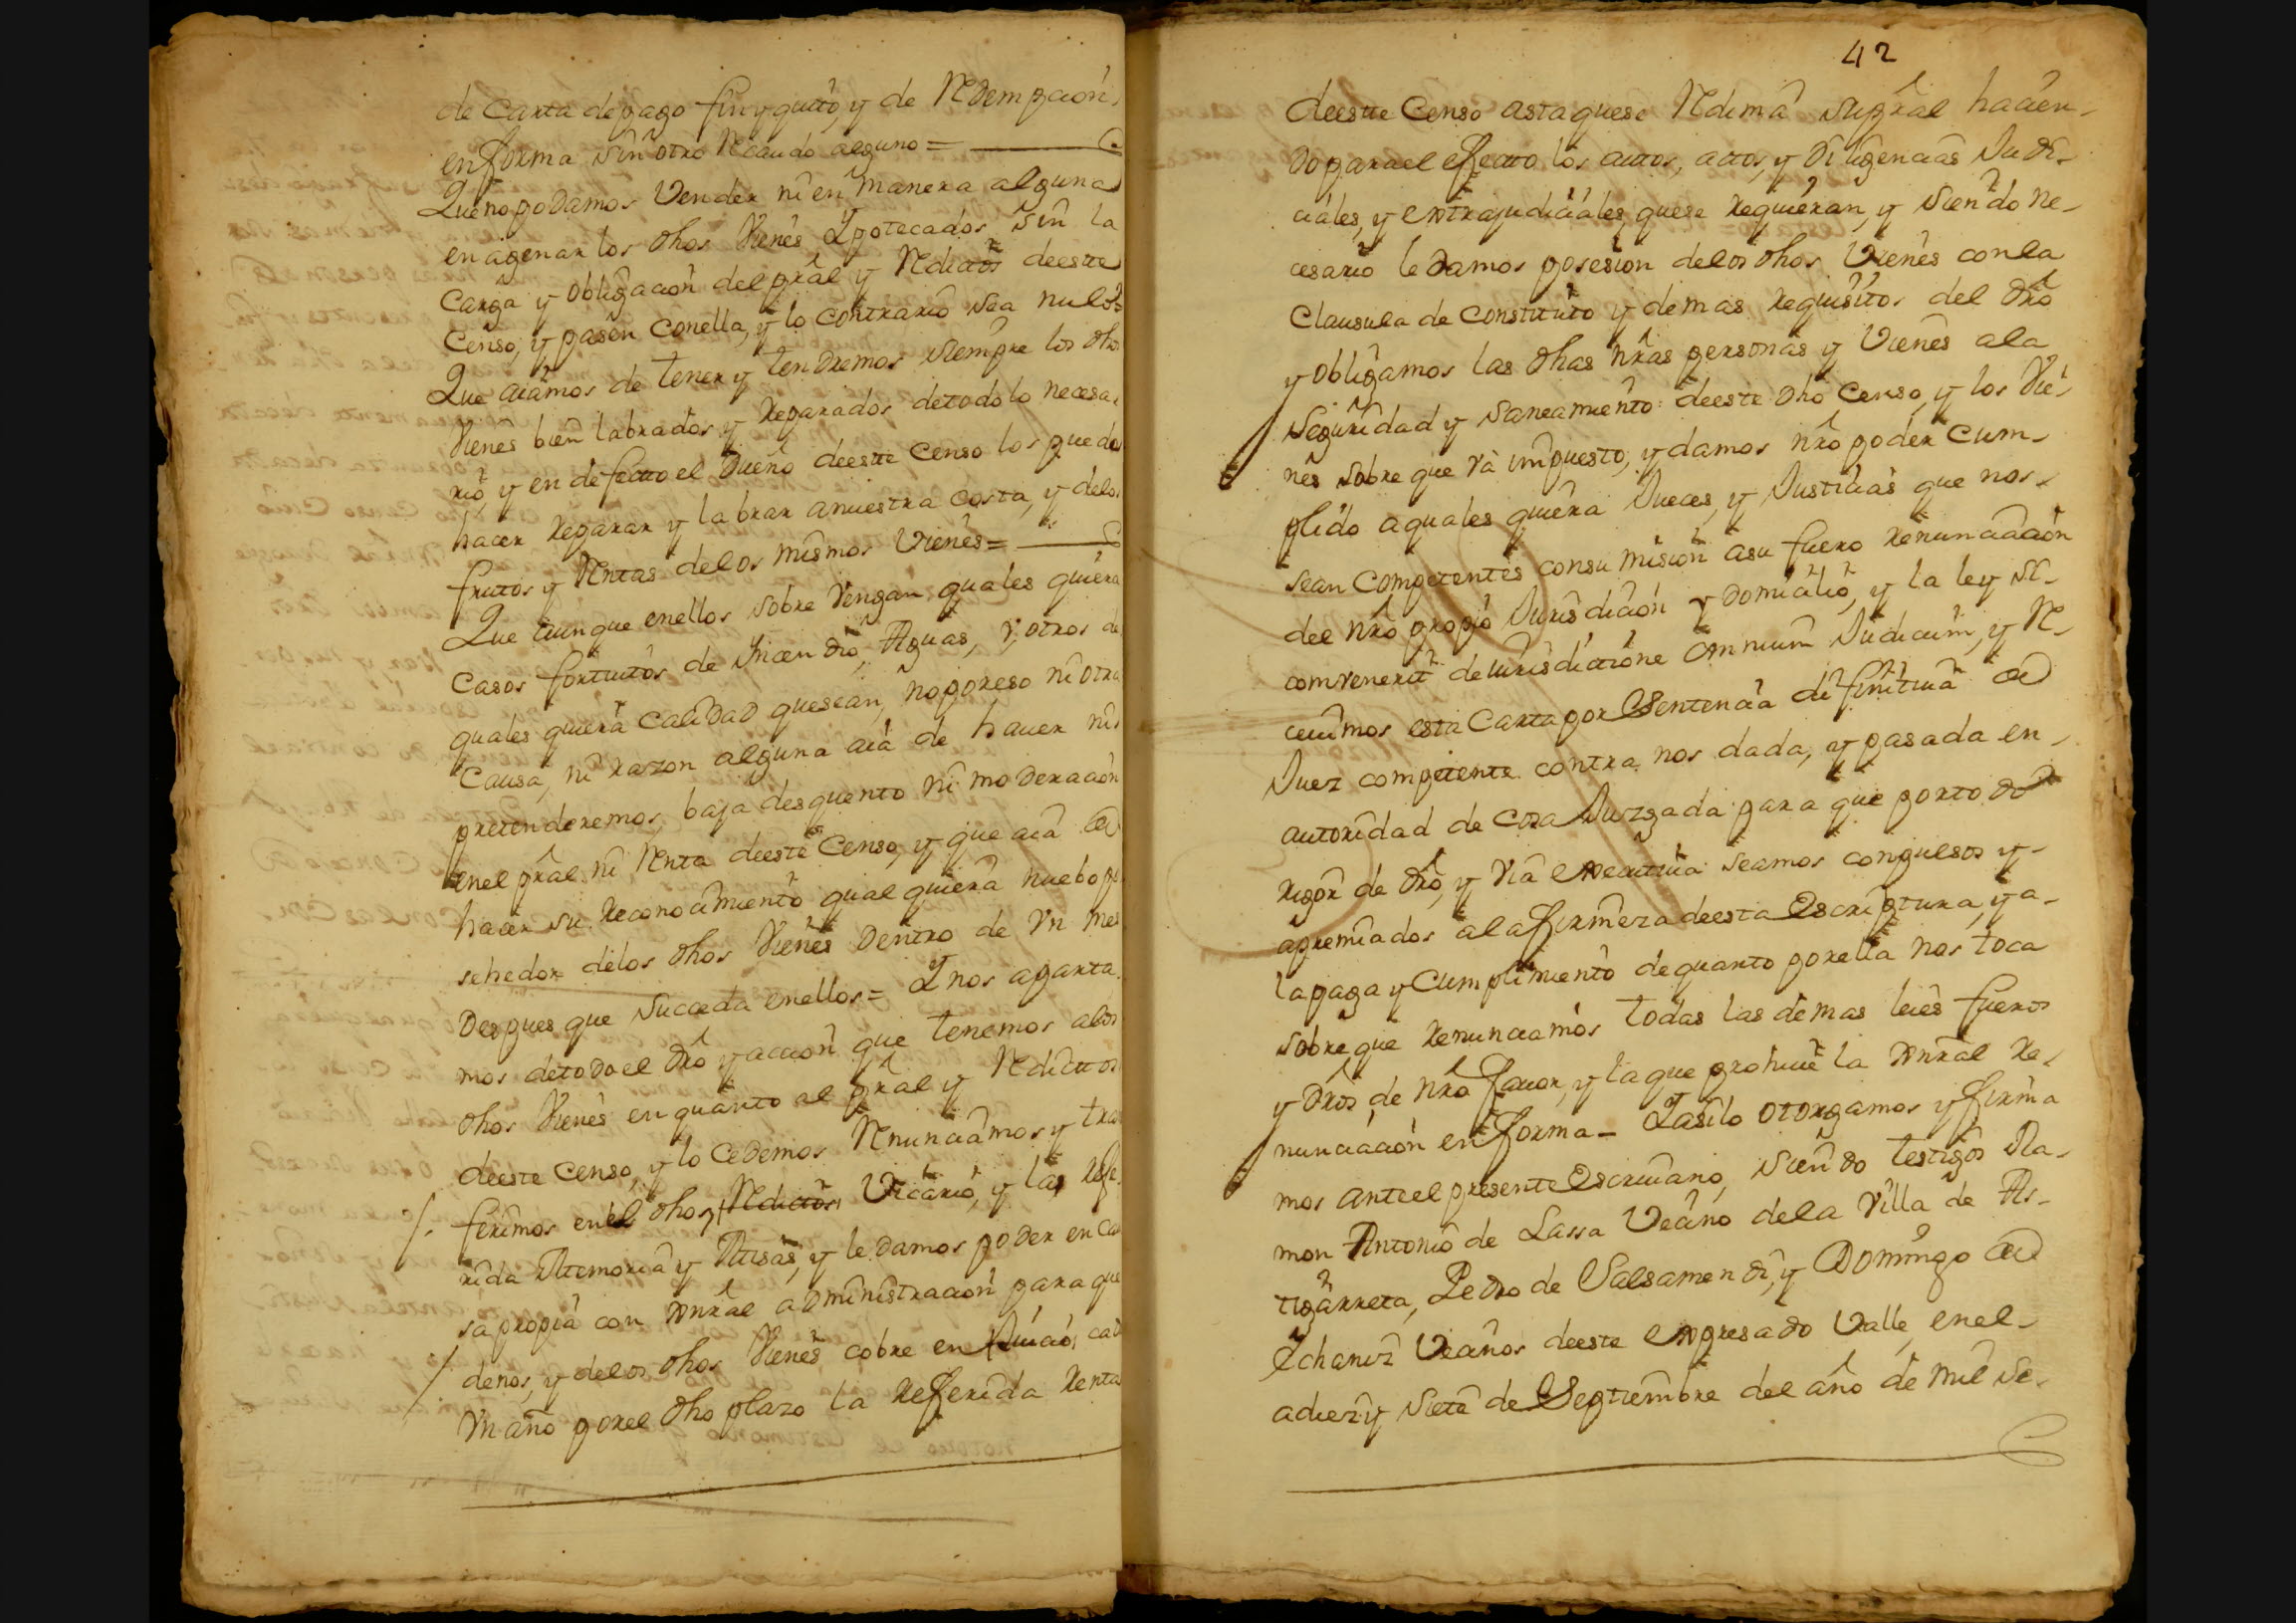 de Carta depago fin y quito, y de Redempcion,
en forma sin otro Recaudo alguno =
Que no podamos Vender ni en manera alguna
enagenar los dhos Vienes Ypotecados sin la
Carga y obligacion del pral y Reditos deeste
Censo, y pasen conella, y lo contrario sea nulo=
Que aiamos de tener y tendremos siempre los dhos
Vienes bien labrados y Reparados detodo lo necesa-
rio, y en defecto el Dueño deeste Censo los pueda
hacer Reparar y labrar anuestra costa, y delos
frutos y Rentas delos mismos Vienes=
Que aunque enellos sobre Vengan quales quiera
Casos fortuitos de Yncendio, Aguas, y otros de
quales quiera calidad quesean, no poreso ni otra
Causa, ni razon alguna aia de haver ni
pretenderemos, baja desquento ni moderacion
enel pral ni Renta deeste Censo, y que aia de
hacer su Reconocimiento qual quiera nuebo po
sehedor delos dhos Vienes Dentro de Vn mes
Despues que succeda enellos= Y nos aparta
mos detodo el dro y accion que tenemos alos
dhos Vienes en quanto al pral y Reditos
deeste Censo, y lo cedemos Renunciamos y tras
ferimos enel dho, Reditos, Vicario, y las Refe
rida Memoria y Misas, y le damos poder en cau
sa propia con Gnral administracion para que
denos, y delos dhos Vienes cobre en cad
Vn año porel dho plazo la Referida Renta
42
deeste Censo asta quese Redima supral hacien-
do parael efecto los autos, actos, y diligencias Judi-
ciales, y extrajudiciales, quese requieran, y siendo ne-
cesario le damos posesion delos dhos Vienes conla
Clausula de Constituto y demas requisitos del dro
y obligamos las dhas nras personas y Vienes ala
Seguridad y saneamiento deeste dho Censo, y los Vie-
nes sobre que và impuesto, y damos nro poder cum-
plido aquales quiera Jueces, y Justicias que nos-
sean Competentes consumision asu fuero renunciacion
del nro propio Jurisdicion y domicilio, y la ley si-
comvenerit de Iurisdictione omnium Judicum, y Re-
cevimos esta Carta por Sentencia difinitiva de
Juez competente contra nos dada, y pasada en-
autoridad de cosa Juzgada para que portodo
rigor de dro, y via executiva seamos conpulsos y-
apremiados ala firmeza deesta Escriptura, y a-
lapaga y Cumplimiento dequanto porella nos toca
sobreque renunciamos todas las demas leies fueros
y dros de nro favor, y la que prohive la Gnral re-
nunciacion en forma- Yasilo otorgamos y firma
mos anteel presente Escrivano, siendo testigos Ra-
mon Antonio de Lassa Vecino dela Villa de As-
tigarreta, Pedro de Salsamendi, y Domingo de
Echaniz Vecinos deeste expresado Valle, enel-
adiez y siete de Septiembre del año de mil se-